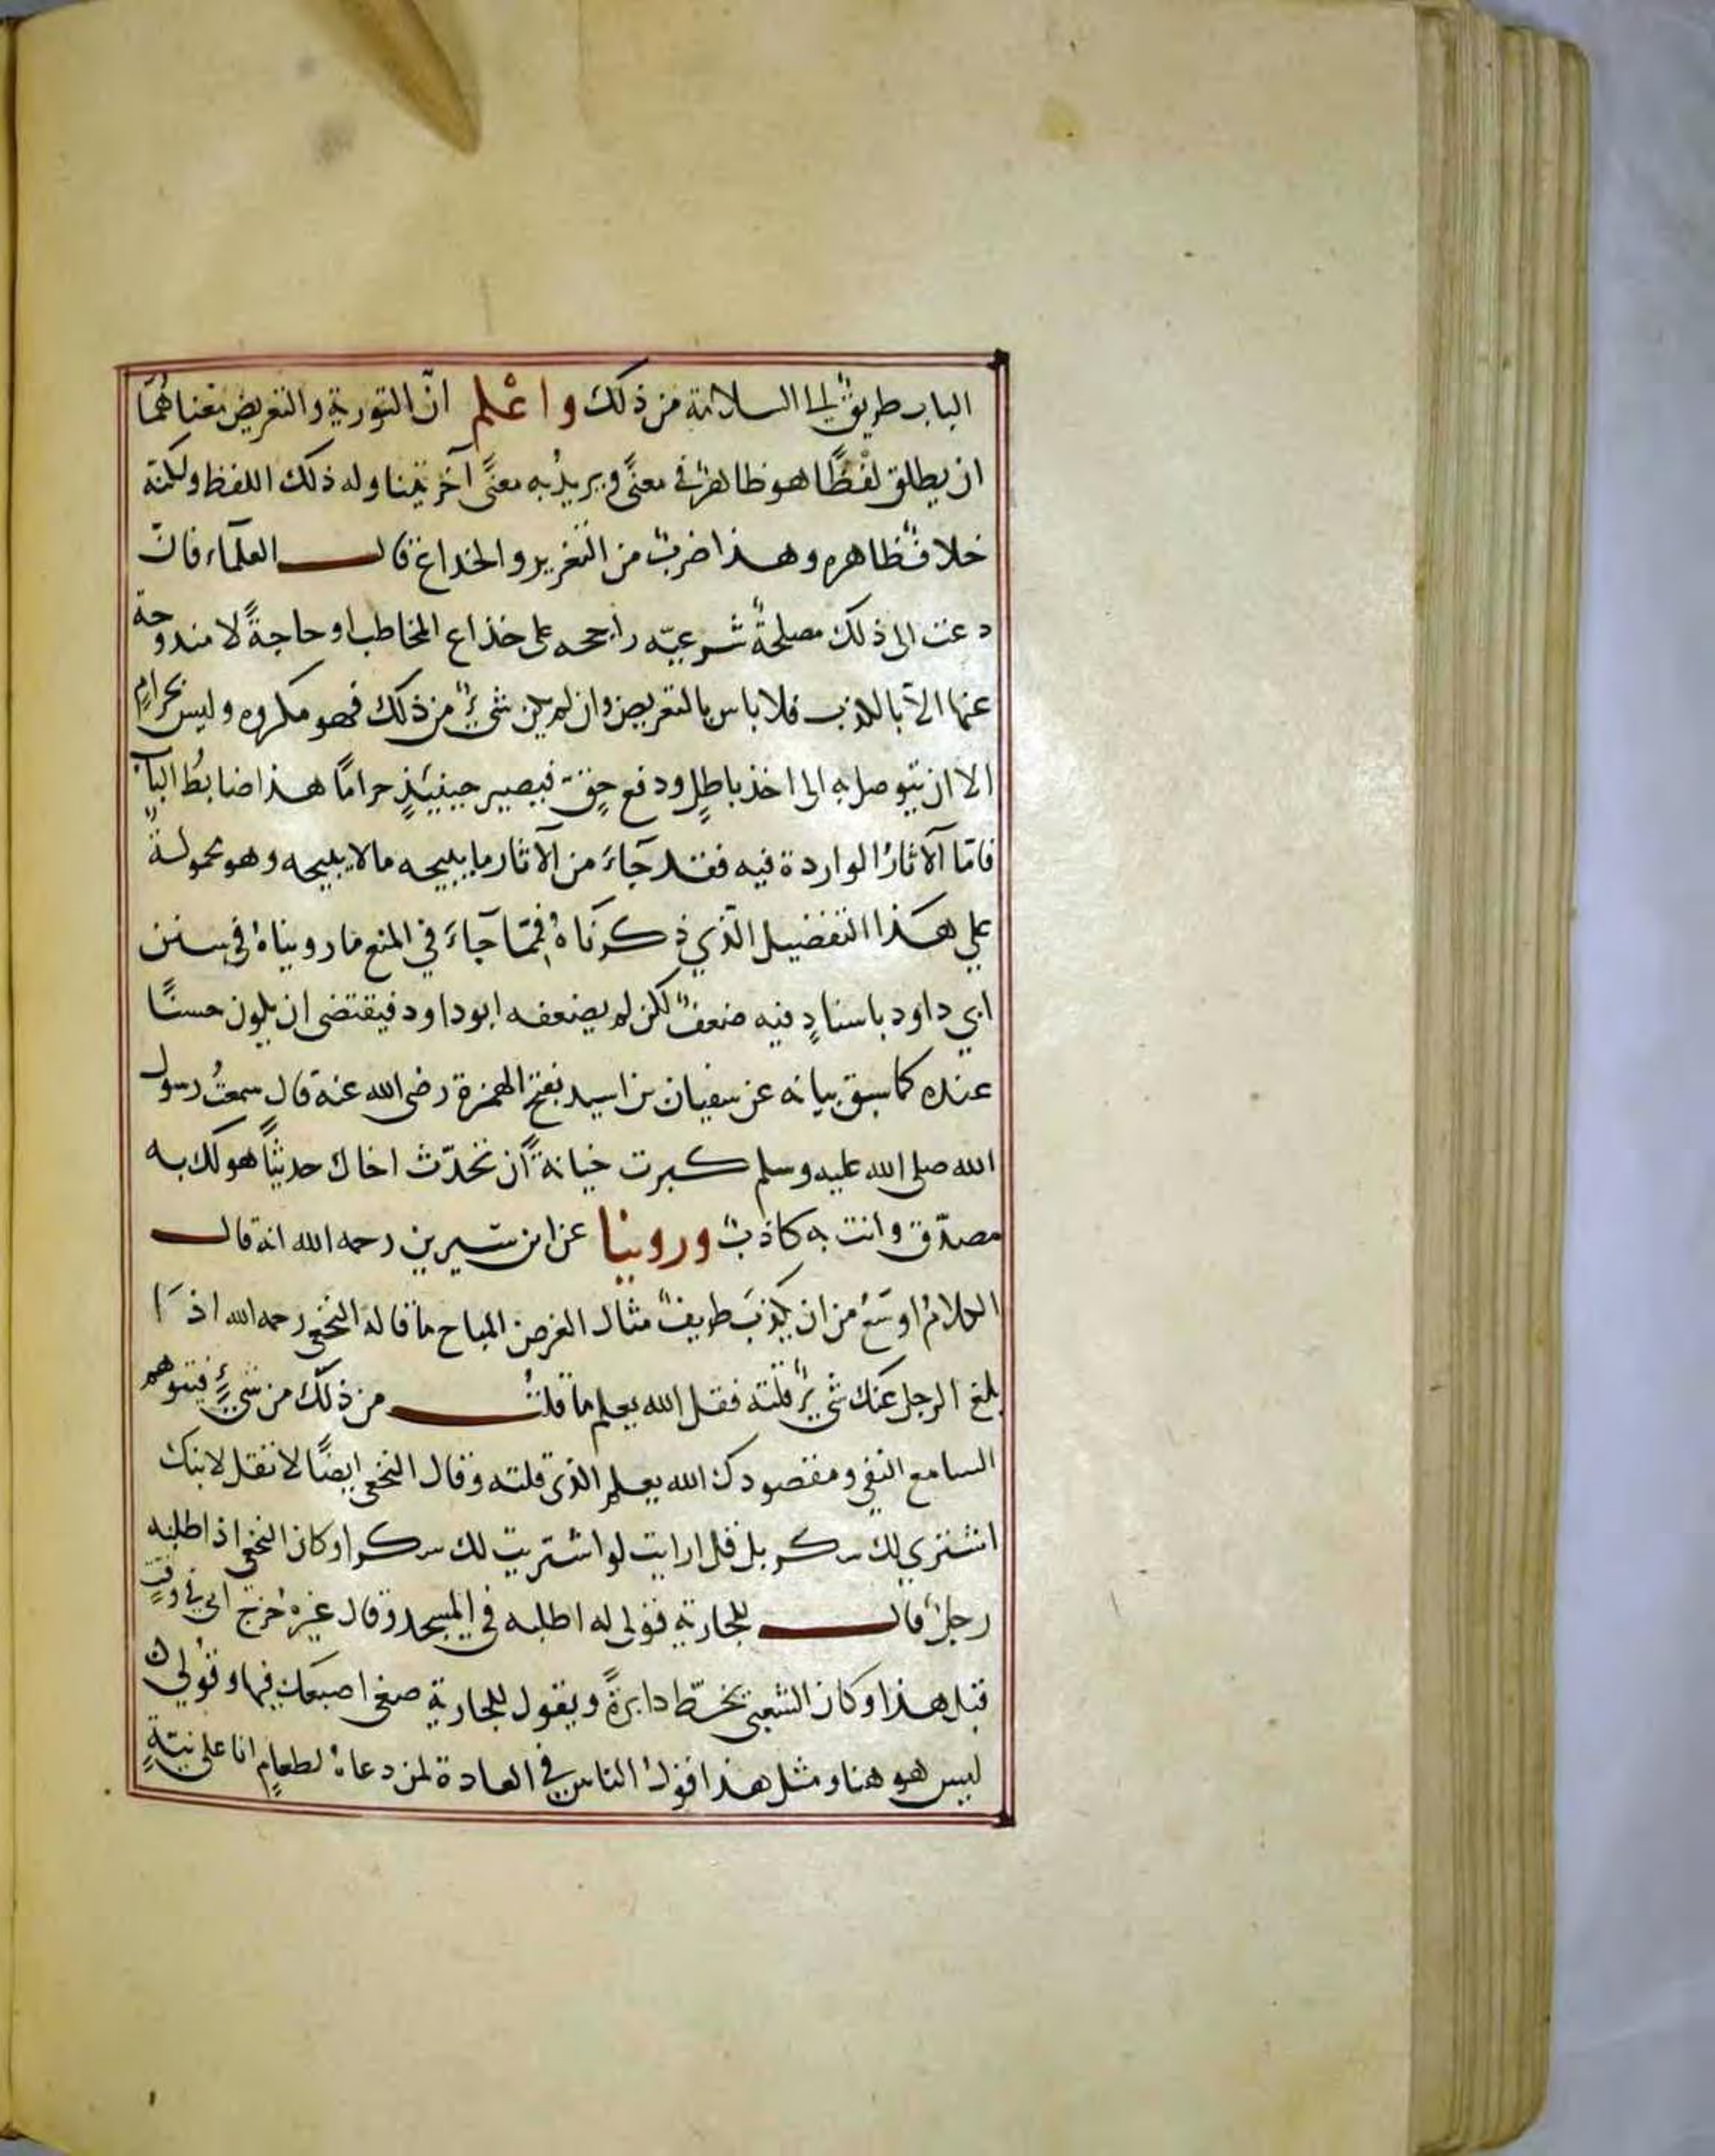 الباب طريقٌ الى السلامة من ذلك واعْلم انّ التورية والتعريض معناهُمَا
ان يطلق لفظًا هو ظاهرٌ في معنًى ويريدُ به معنًى آخر يتناوله ذلك اللفظ ولكنه
خلافُ ظاهره وهذا ضربٌ من التغرير والخداع قال العلمآء فانْ
دعت الى ذلك مصلحةٌ شرعيّه راجحه على خداع المخاطب او حاجةً لا مندوحة
عنها الآ بالكذب فلا باس بالتعريض وان لم يكن شيءٌ من ذلك فهو مكروه وليس بحرامٍ
الا ان يتوصل به الى اخذ باطلٍ ودفع حقٍ فيصير حينيئذٍ حرامًا هذا ضابطُ الباب
فامّا الآثارُ الواردة فيه فقد جآءَ من الآثار ما يبيحه ما لا يبيحه وهو محمولةٌ
على هذا التفضيل الذي ذكرناهُ فممّا جآءَ في المنع ما رويناهُ في سنن
ابي داود باسنادٍ فيه ضعفٌ لكن لم يضعفه ابو داود فيقتضى ان يكون حسنًا
عنده كما سبق بيانه عن سفيان بن اسيد بفتح الهمزة رضى الله عنه قال سمعتُ رسول
الله صلى الله عليه وسلم كبرت خيانةً آن تحدّث اخاك حديثًا هو لك به
مصدّق وانت به كاذبٌ وروينا عن ابن سيرين رحمه الله انه قال
الكلامُ اوسَعُ من ان يكذبَ طريفٌ مثال الغرض المباح ما قاله النخعى رحمه الله اذَا
بلغ الرجل عنك شيءٌ قلته فقل الله يعلم ما قلتُ من ذلك من شيءٍ فيتوهم
السامع النفي ومقصودك الله يعلم الذي قلته وقال النخعى ايضًا لا تقل لابنك
اشتري لك سكر بل قل ارايت لو اشتريت لك سكرا وكان النخعى اذا طلبه
رجلٌ قال للجارية قولى له اطلبه في المسجد وقال غيرهُ خرج ابي في وقتٍ
قبل هذا وكان الشعبى يخطّ دايرةً ويقول للجارية ضعى اصبعك فيها وقُولي
ليس هو هنا ومثل هذا قولُ الناس في العادة لمن دعاهُ لطعامٍ انا على نيّةٍ